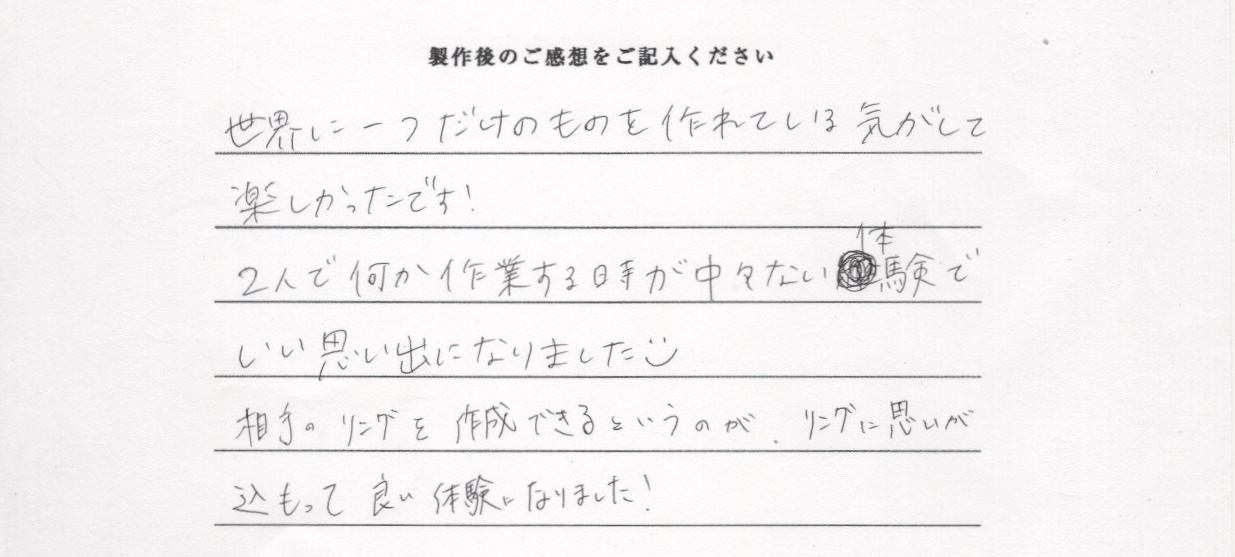 製作後のご感想をご記入ください
世界に一つだけのものを作れている気がして
楽しかったです!
2人で何か作業する時が中々ない体験で
いい思い出になりました
相手のリングを作成できるというのが、リングに思いが
込もって良い体験になりました!